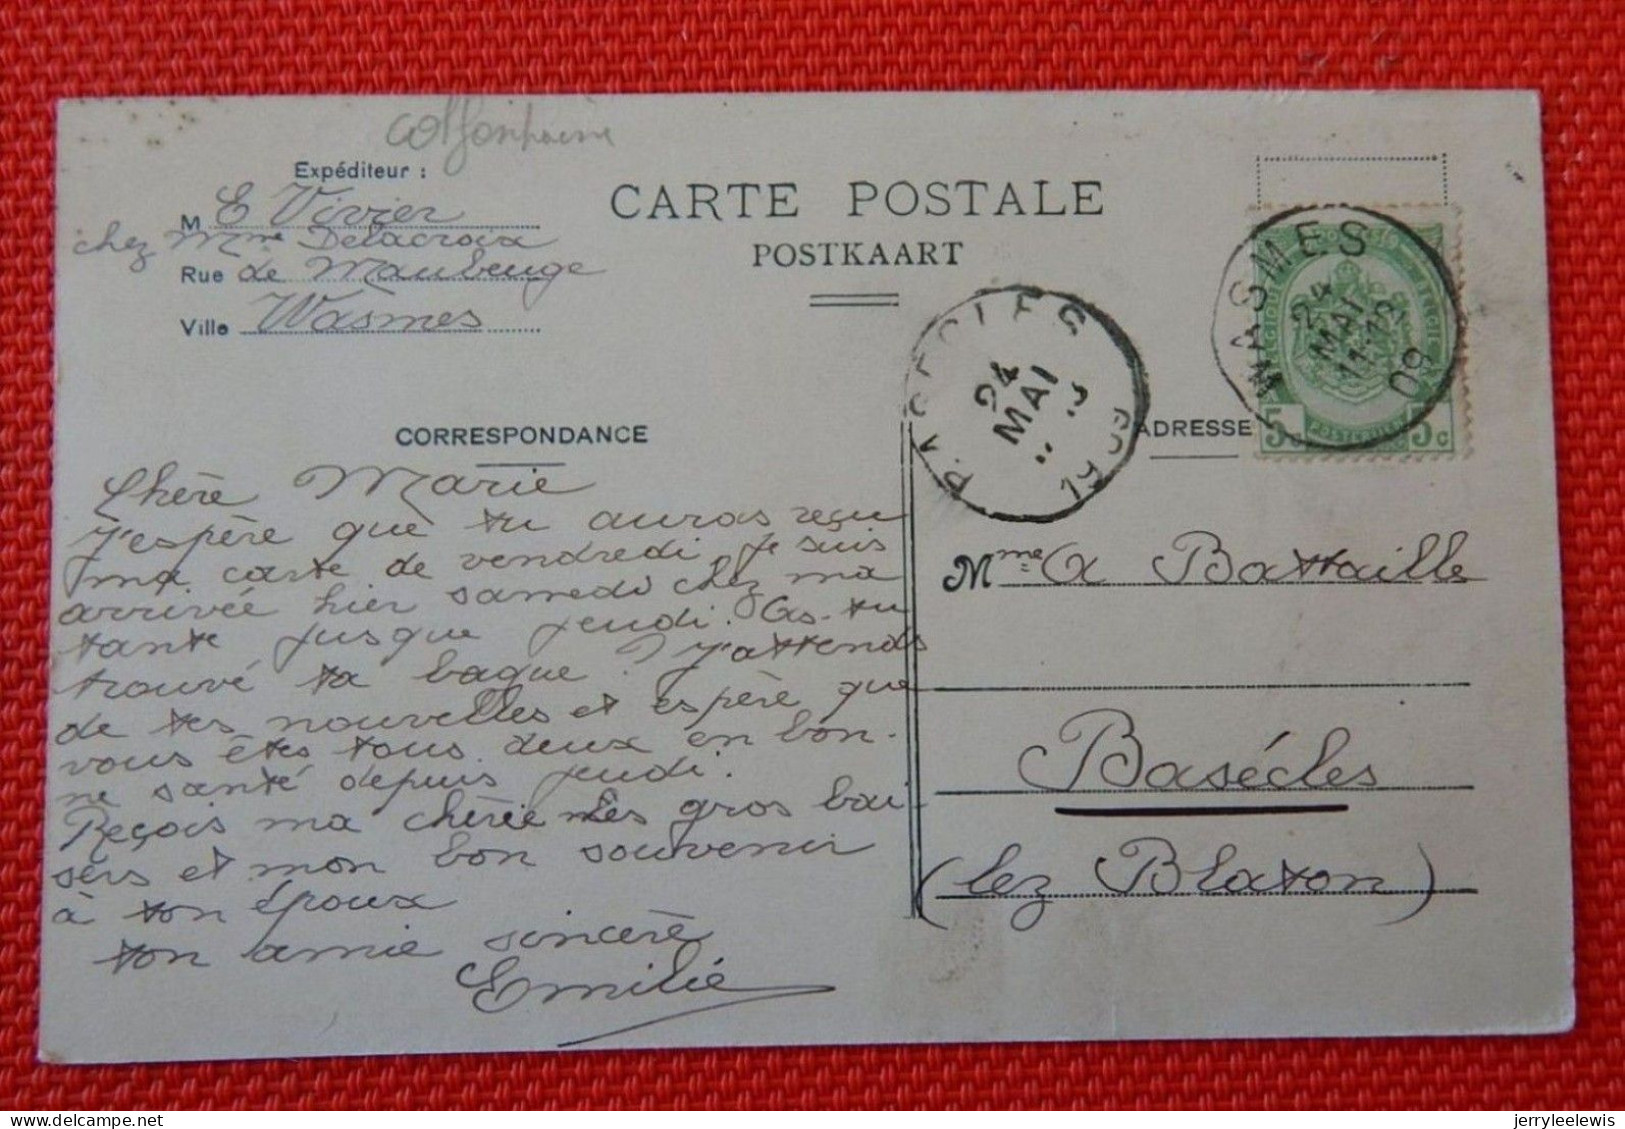 Colfontaine
Expéditeur :
M E Vivier
chez Mme Delacroix
Rue de Maubeuge
Ville Wasmes
CARTE POSTALE
POSTKAART
WASMES
24
MAI
11-12
09
5c 5c
BASECLES
24
MAI
1909
CORRESPONDANCE
ADRESSE
Chère Marie
J'espère que tu auras reçu
ma carte de vendredi, je suis
arrivée hier samedi chez ma
tante jusque jeudi. As-tu
trouvé ta bague ? J'attends
de tes nouvelles et espère que
vous êtes tous deux en bon-
ne santé depuis jeudi.
Reçois ma chérie mes gros bai-
sers et mon bon souvenir
à ton époux
ton amie sincère
Emilie
Mme A Battaille
Basécles
(lez Blaton)
jerryleelewis